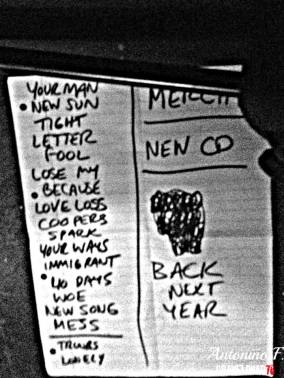 YOUR MAN
• NEW SUN
TIGHT
LETTER
FOOL
LOSE MY
• BECAUSE
LOVE LOSS
COOPERS
SPARK
YOUR WAYS
IMMIGRANT
• 40 DAYS
WOE
NEW SONG
MESS
• TRUMRS
LONELY
MERCH
NEW CD
BACK
NEXT
YEAR
Antonino F.